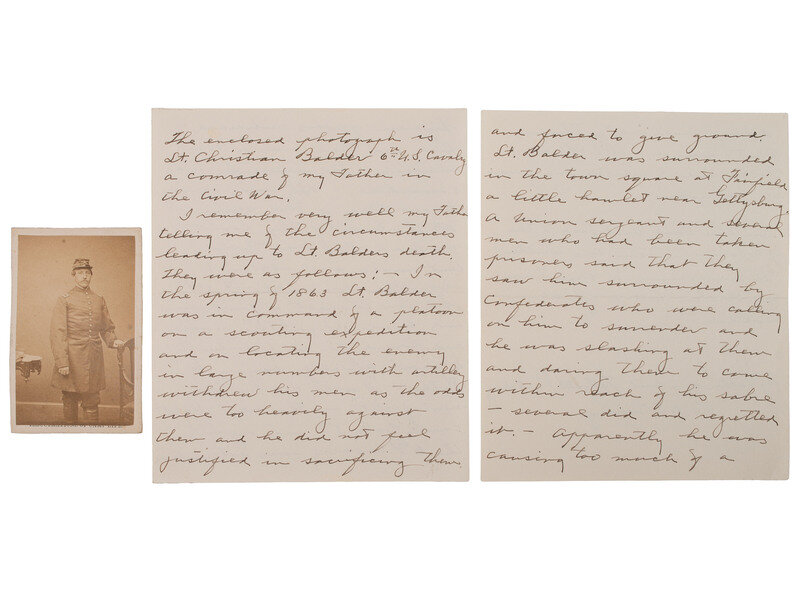 The enclosed photograph is
Lt. Christian Balder 6th U.S. Cavalry
a comrade of my Father in
the Civil War.
I remember very well my Father
telling me of the circumstances
leading up to Lt. Balders death.
They were as follows:- In
the spring of 1863 Lt. Balder
was in command of a platoon
on a scouting expedition
and on locating the enemy
in large numbers with artillery
withdrew his men as the odds
were too heavily against
them and he did not feel
justified in sacrificing them
and forced to give ground.
Lt. Balder was surrounded
in the town square at Fairfield
a little hamlet near Gettysburg.
A Union sergeant and several
men who had been taken
prisoners said that they
saw him surrounded by
Confederates who were calling
on him to surrender and
he was slashing at them
and daring them to come
within reach of his sabre
- several did and regretted
it. - Apparently he was
causing too much of a